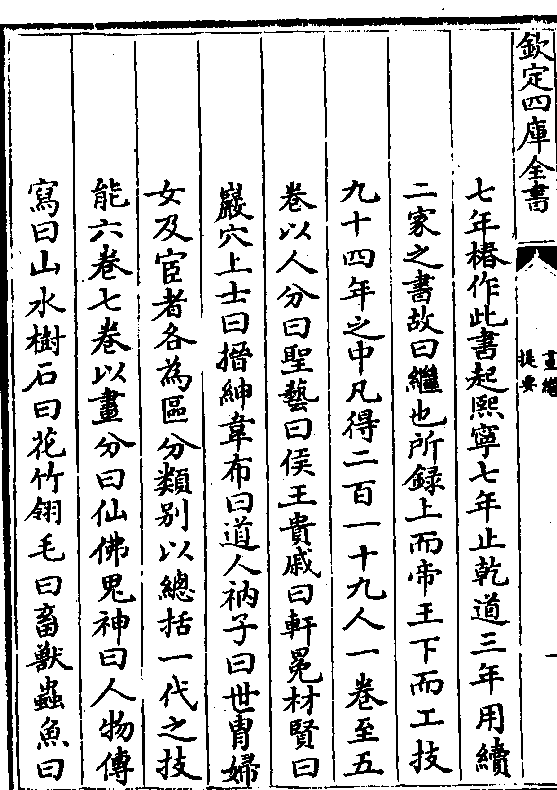 欽定四庫全書
畫繼
提要
七年椿作此書起熙寧七年止乾道三年用續
二家之書故曰繼也所録上而帝王下而工技
九十四年之中凡得二百一十九人一卷至五
卷以人分曰聖藝曰侯王貴戚曰軒冕材賢曰
巖穴上士曰搢紳韋布曰道人衲子曰世胄婦
女及宦者各為區分類别以總括一代之技
能六卷七卷以畫分曰仙佛鬼神曰人物傳
寫曰山水樹石曰花竹翎毛曰畜獸蟲魚曰